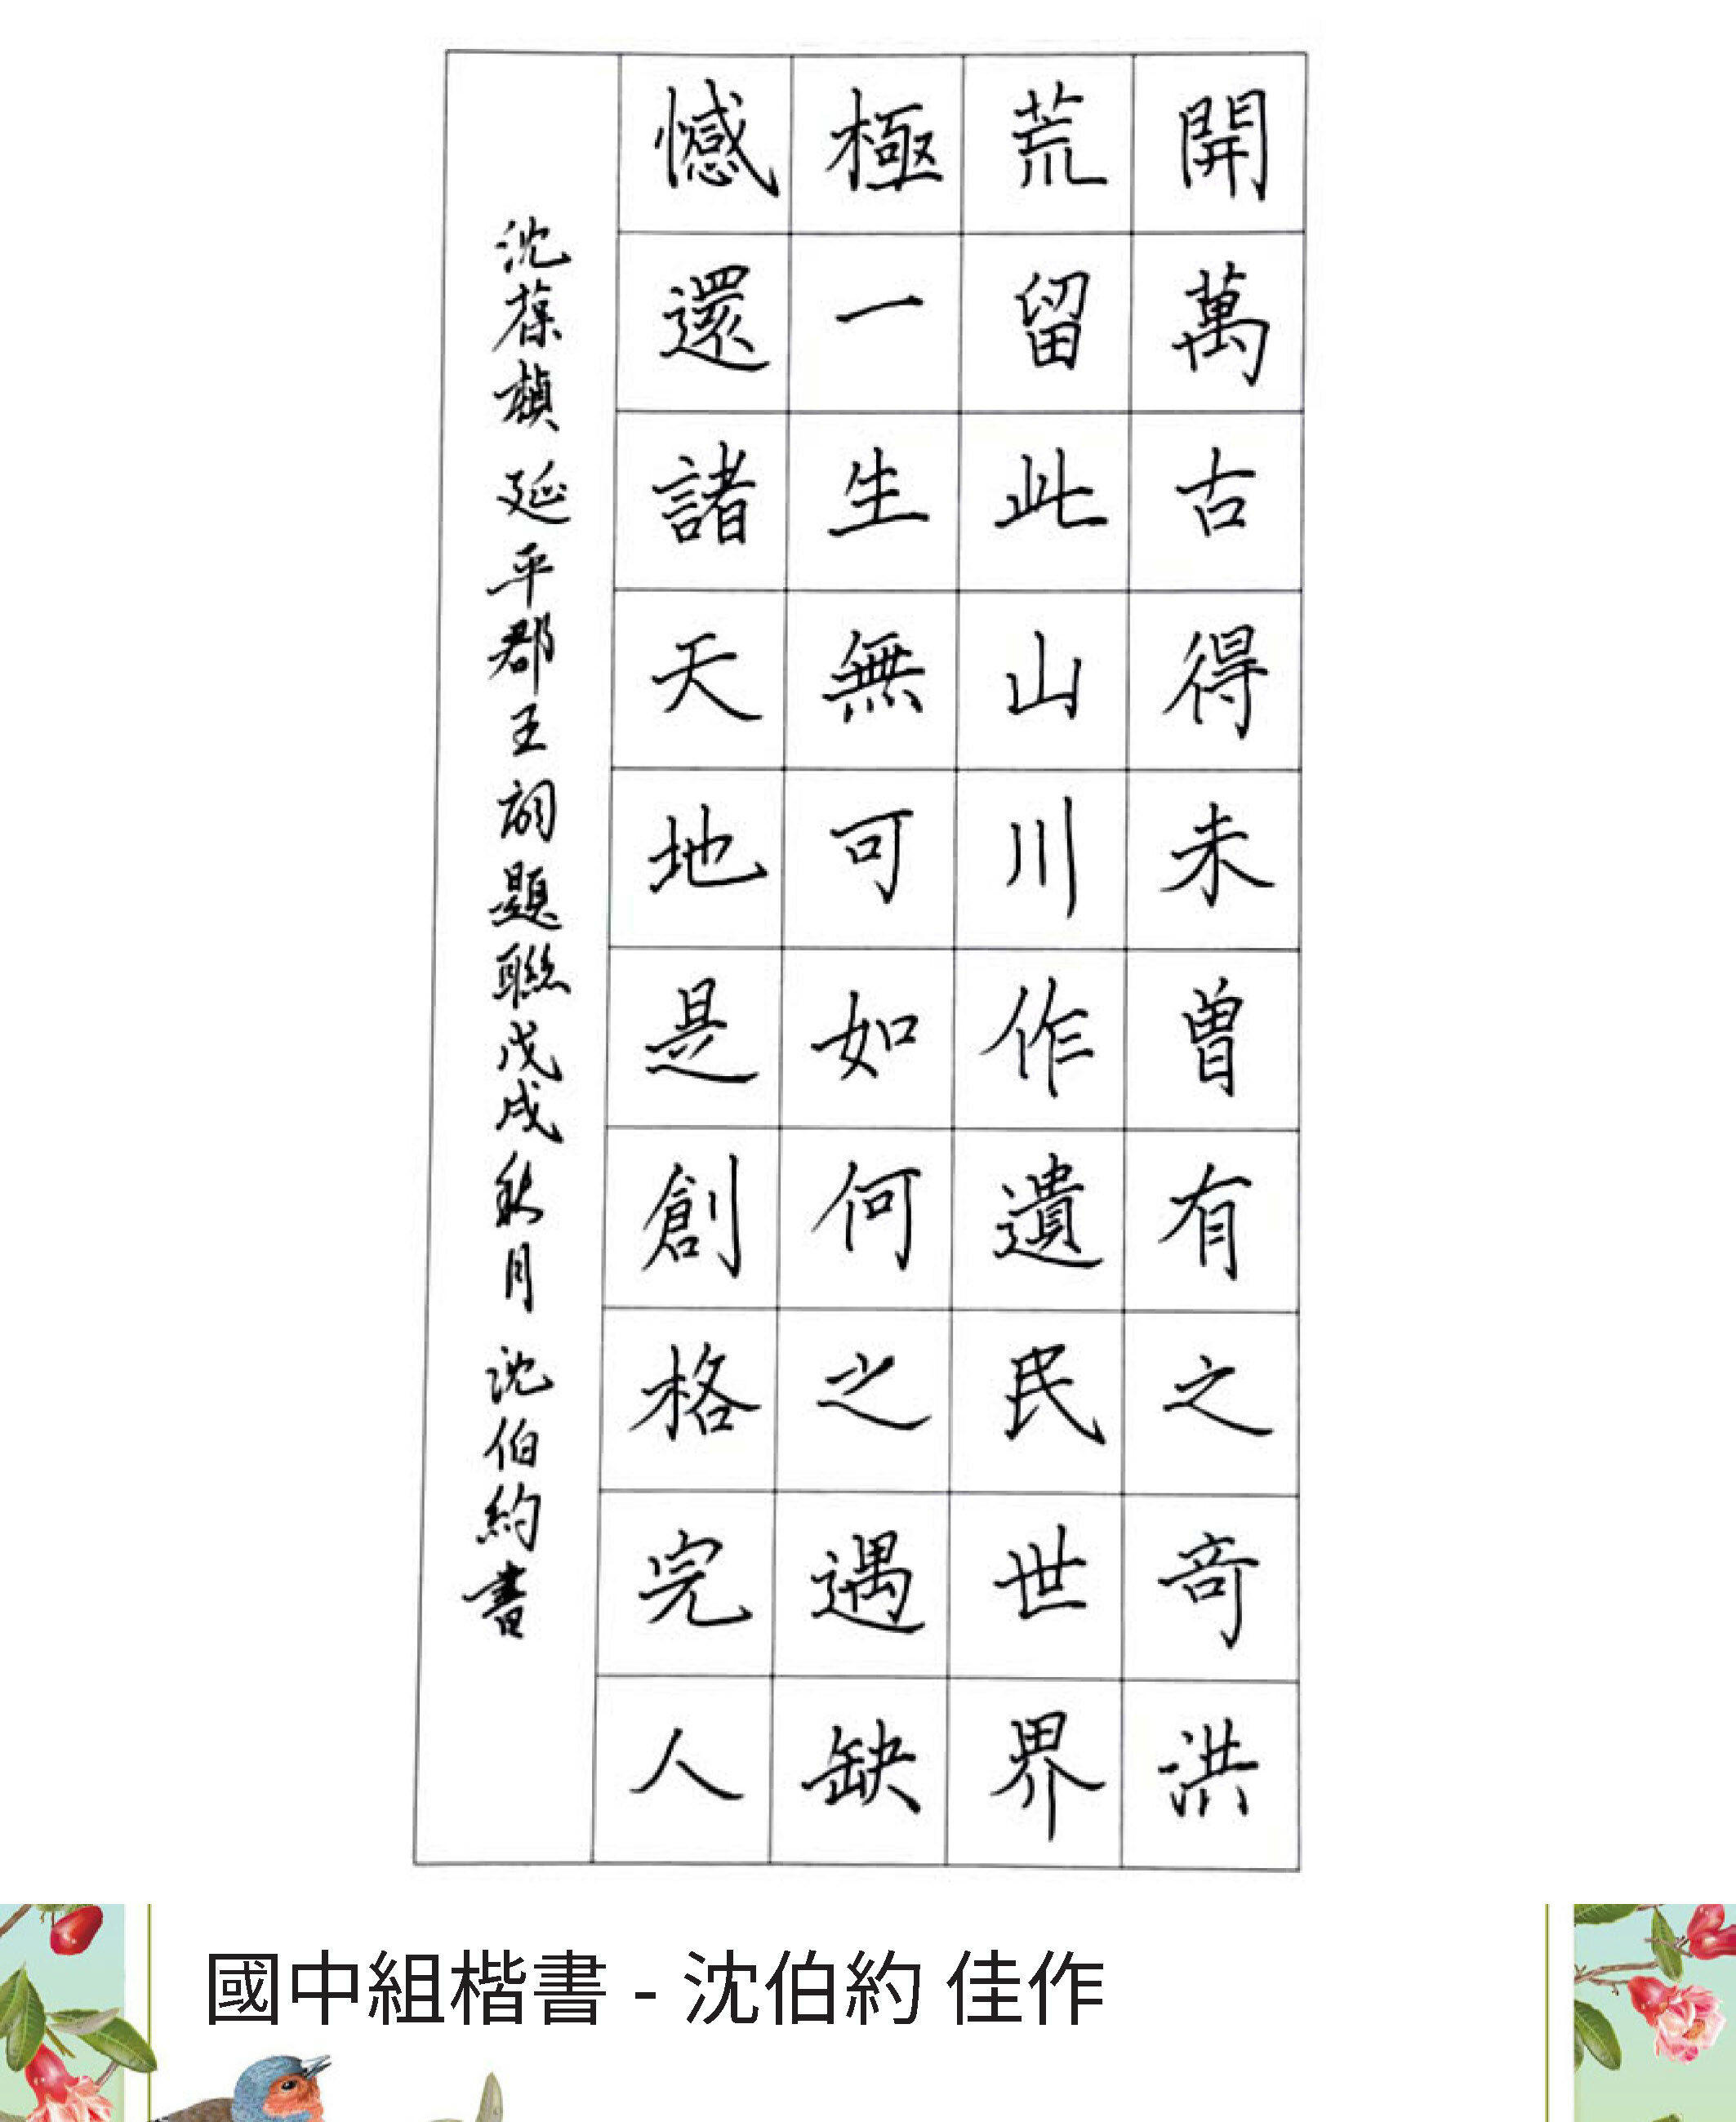 開萬古得未曾有之奇洪
荒留此山川作遺民世界
極一生無可如何之遇缺
憾還諸天地是創格完人
沈葆楨 延平郡王祠題聯戊戌秋月 沈伯約書
國中組楷書 - 沈伯約 佳作